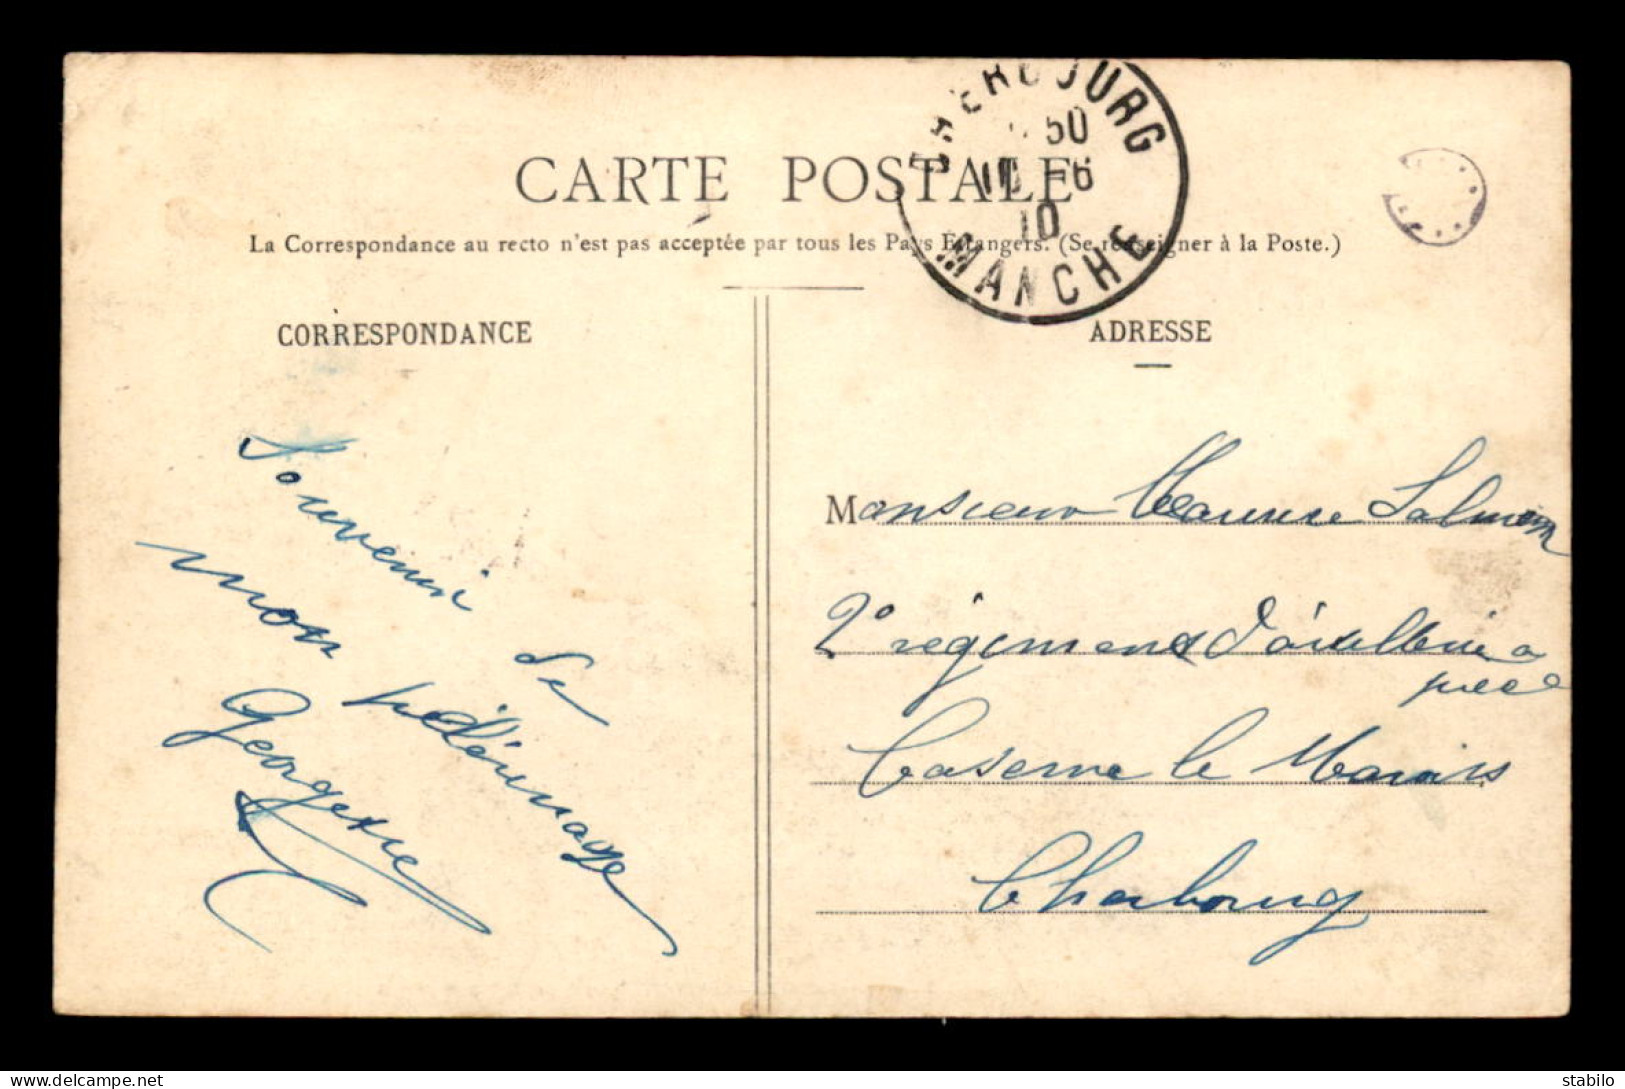 CARTE POSTALE
La Correspondance au recto n'est pas acceptée par tous les Pays Etrangers. (Se renseigner à la Poste.)
CHERBOURG
50
10 -6
10
MANCHE
CORRESPONDANCE
Souvenir de
mon pélérinage
Georgette
ADRESSE
Monsieur Maurice Salmon
2e régiment d'artillerie a
pied
Caserne le Marais
Cherbourg
delcampe.net
stabilo